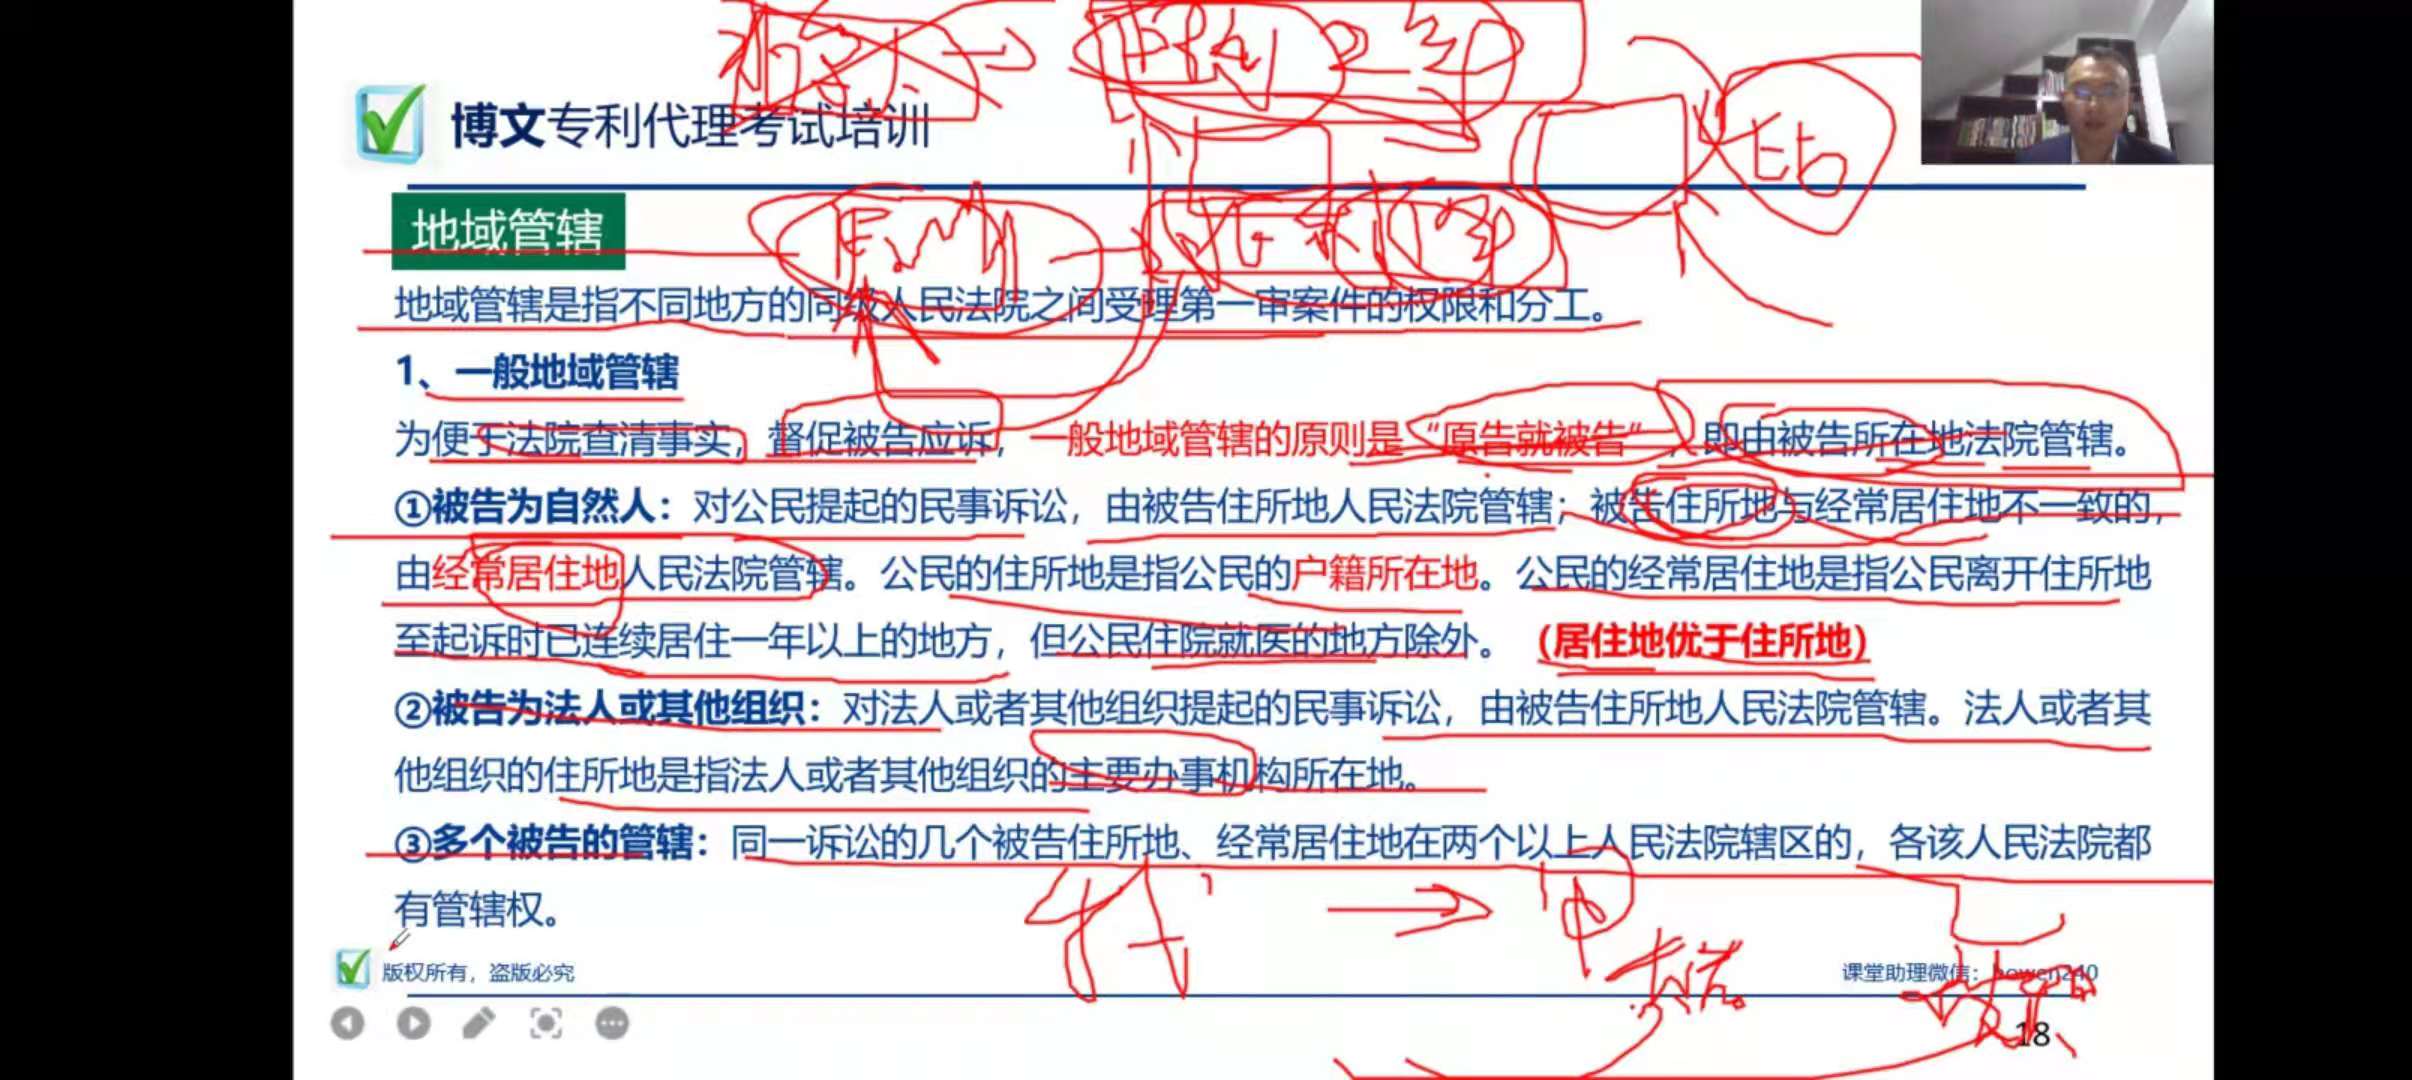 博文专利代理考试培训
地域管辖
地域管辖是指不同地方的同级人民法院之间受理第一审案件的权限和分工。
1、一般地域管辖
为便于法院查清事实，督促被告应诉，一般地域管辖的原则是“原告就被告”，即由被告所在地法院管辖。
①被告为自然人：对公民提起的民事诉讼，由被告住所地人民法院管辖；被告住所地与经常居住地不一致的，
由经常居住地人民法院管辖。公民的住所地是指公民的户籍所在地。公民的经常居住地是指公民离开住所地
至起诉时已连续居住一年以上的地方，但公民住院就医的地方除外。（居住地优于住所地）
②被告为法人或其他组织：对法人或者其他组织提起的民事诉讼，由被告住所地人民法院管辖。法人或者其
他组织的住所地是指法人或者其他组织的主要办事机构所在地。
③多个被告的管辖：同一诉讼的几个被告住所地、经常居住地在两个以上人民法院辖区的，各该人民法院都
有管辖权。
版权所有，盗版必究
课堂助理微信：bowen240
18